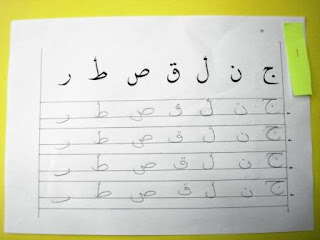 ج ن ل ق ص ط ر
ج ن ل ق ص ط ر
ج ن ل ق ص ط ر
ج ن ل ق ص ط ر
ج ن ل ق ص ط ر